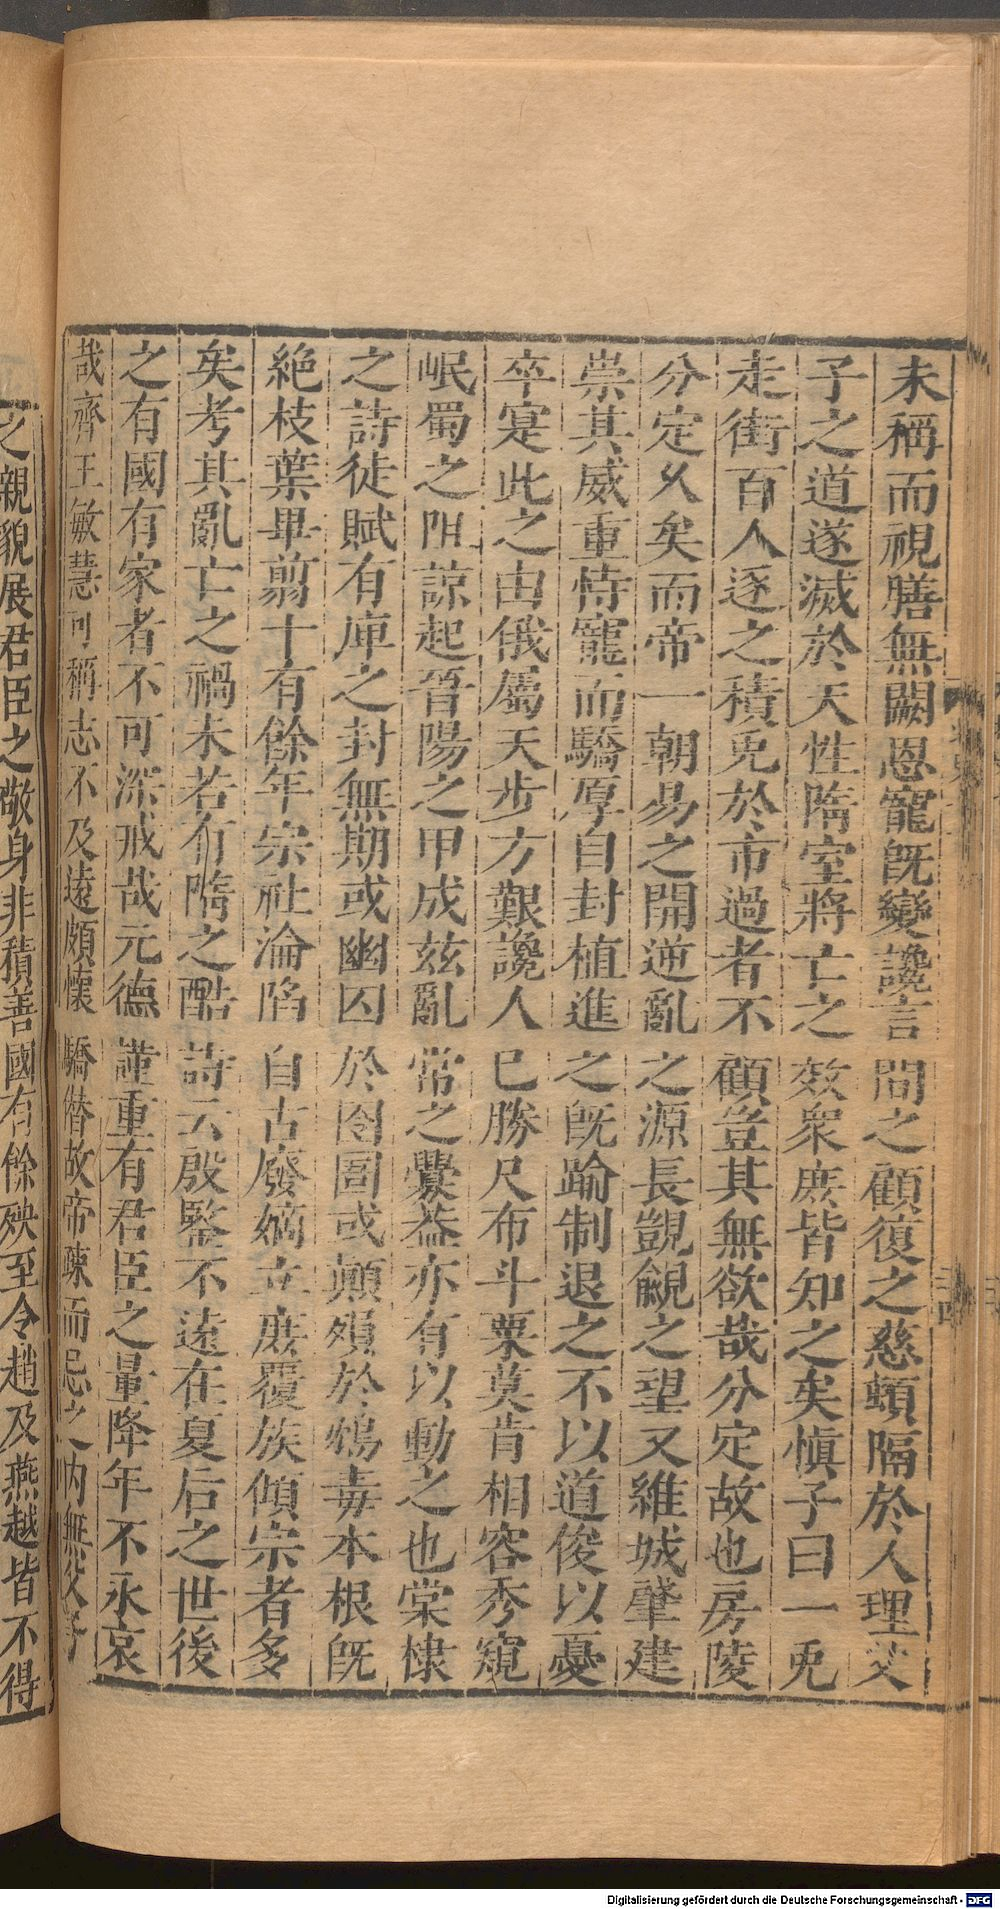 未稱而視膳無闕恩寵旣變讒言間之顧復之慈頓隔於人理父
子之道遂滅於天性隋室將亡之效衆庶皆知之矣愼子曰一兎
走街百人逐之積兎於市過者不顧豈其無欲哉分定故也房陵
分定久矣而帝一朝易之開逆亂之源長覬覦之望又維城肇建
崇其威重恃寵而驕厚自封植進之旣踰制退之不以道俊以憂
卒寔此之由俄屬天步方艱讒人已勝尺布斗粟莫肯相容秀窺
岷蜀之阻諒起晉陽之甲成兹亂常之釁葢亦有以動之也棠棣
之詩徒賦有庳之封無期或幽囚於囹圄或顛殞於鴆毒本根旣
絶枝葉畢翦十有餘年宗社淪陷自古廢嫡立庶覆族傾宗者多
矣考其亂亡之禍未若有隋之酷詩云殷鑒不遠在夏后之世後
之有國有家者不可深戒哉元德謹重有君臣之量降年不永哀
哉齊王敏慧可稱志不及遠頗懷驕僭故帝疎而忌之内無父子
之親貌展君臣之敬身非積善國有餘殃至令趙及燕越皆不得
Digitalisierung gefördert durch die Deutsche Forschungsgemeinschaft - DFG